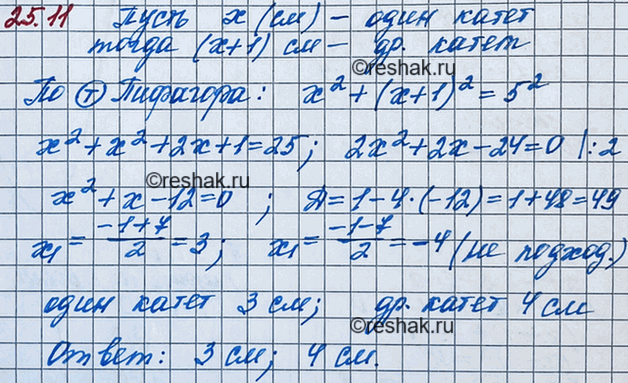 25.11 Пусть x (см) – один катет
тогда (x+1) см – др. катет
©reshak.ru
По Ⓣ Пифагора: x² + (x+1)² = 5²
x² + x² + 2x + 1 = 25; 2x² + 2x – 24 = 0 |:2
©reshak.ru
x² + x – 12 = 0 ; Д = 1 – 4 · (–12) = 1 + 48 = 49
x₁ = (–1+7)/2 = 3; x₁ = (–1–7)/2 = –4 (не подход.)
один катет 3 см; др. катет 4 см
©reshak.ru
Ответ: 3 см; 4 см.